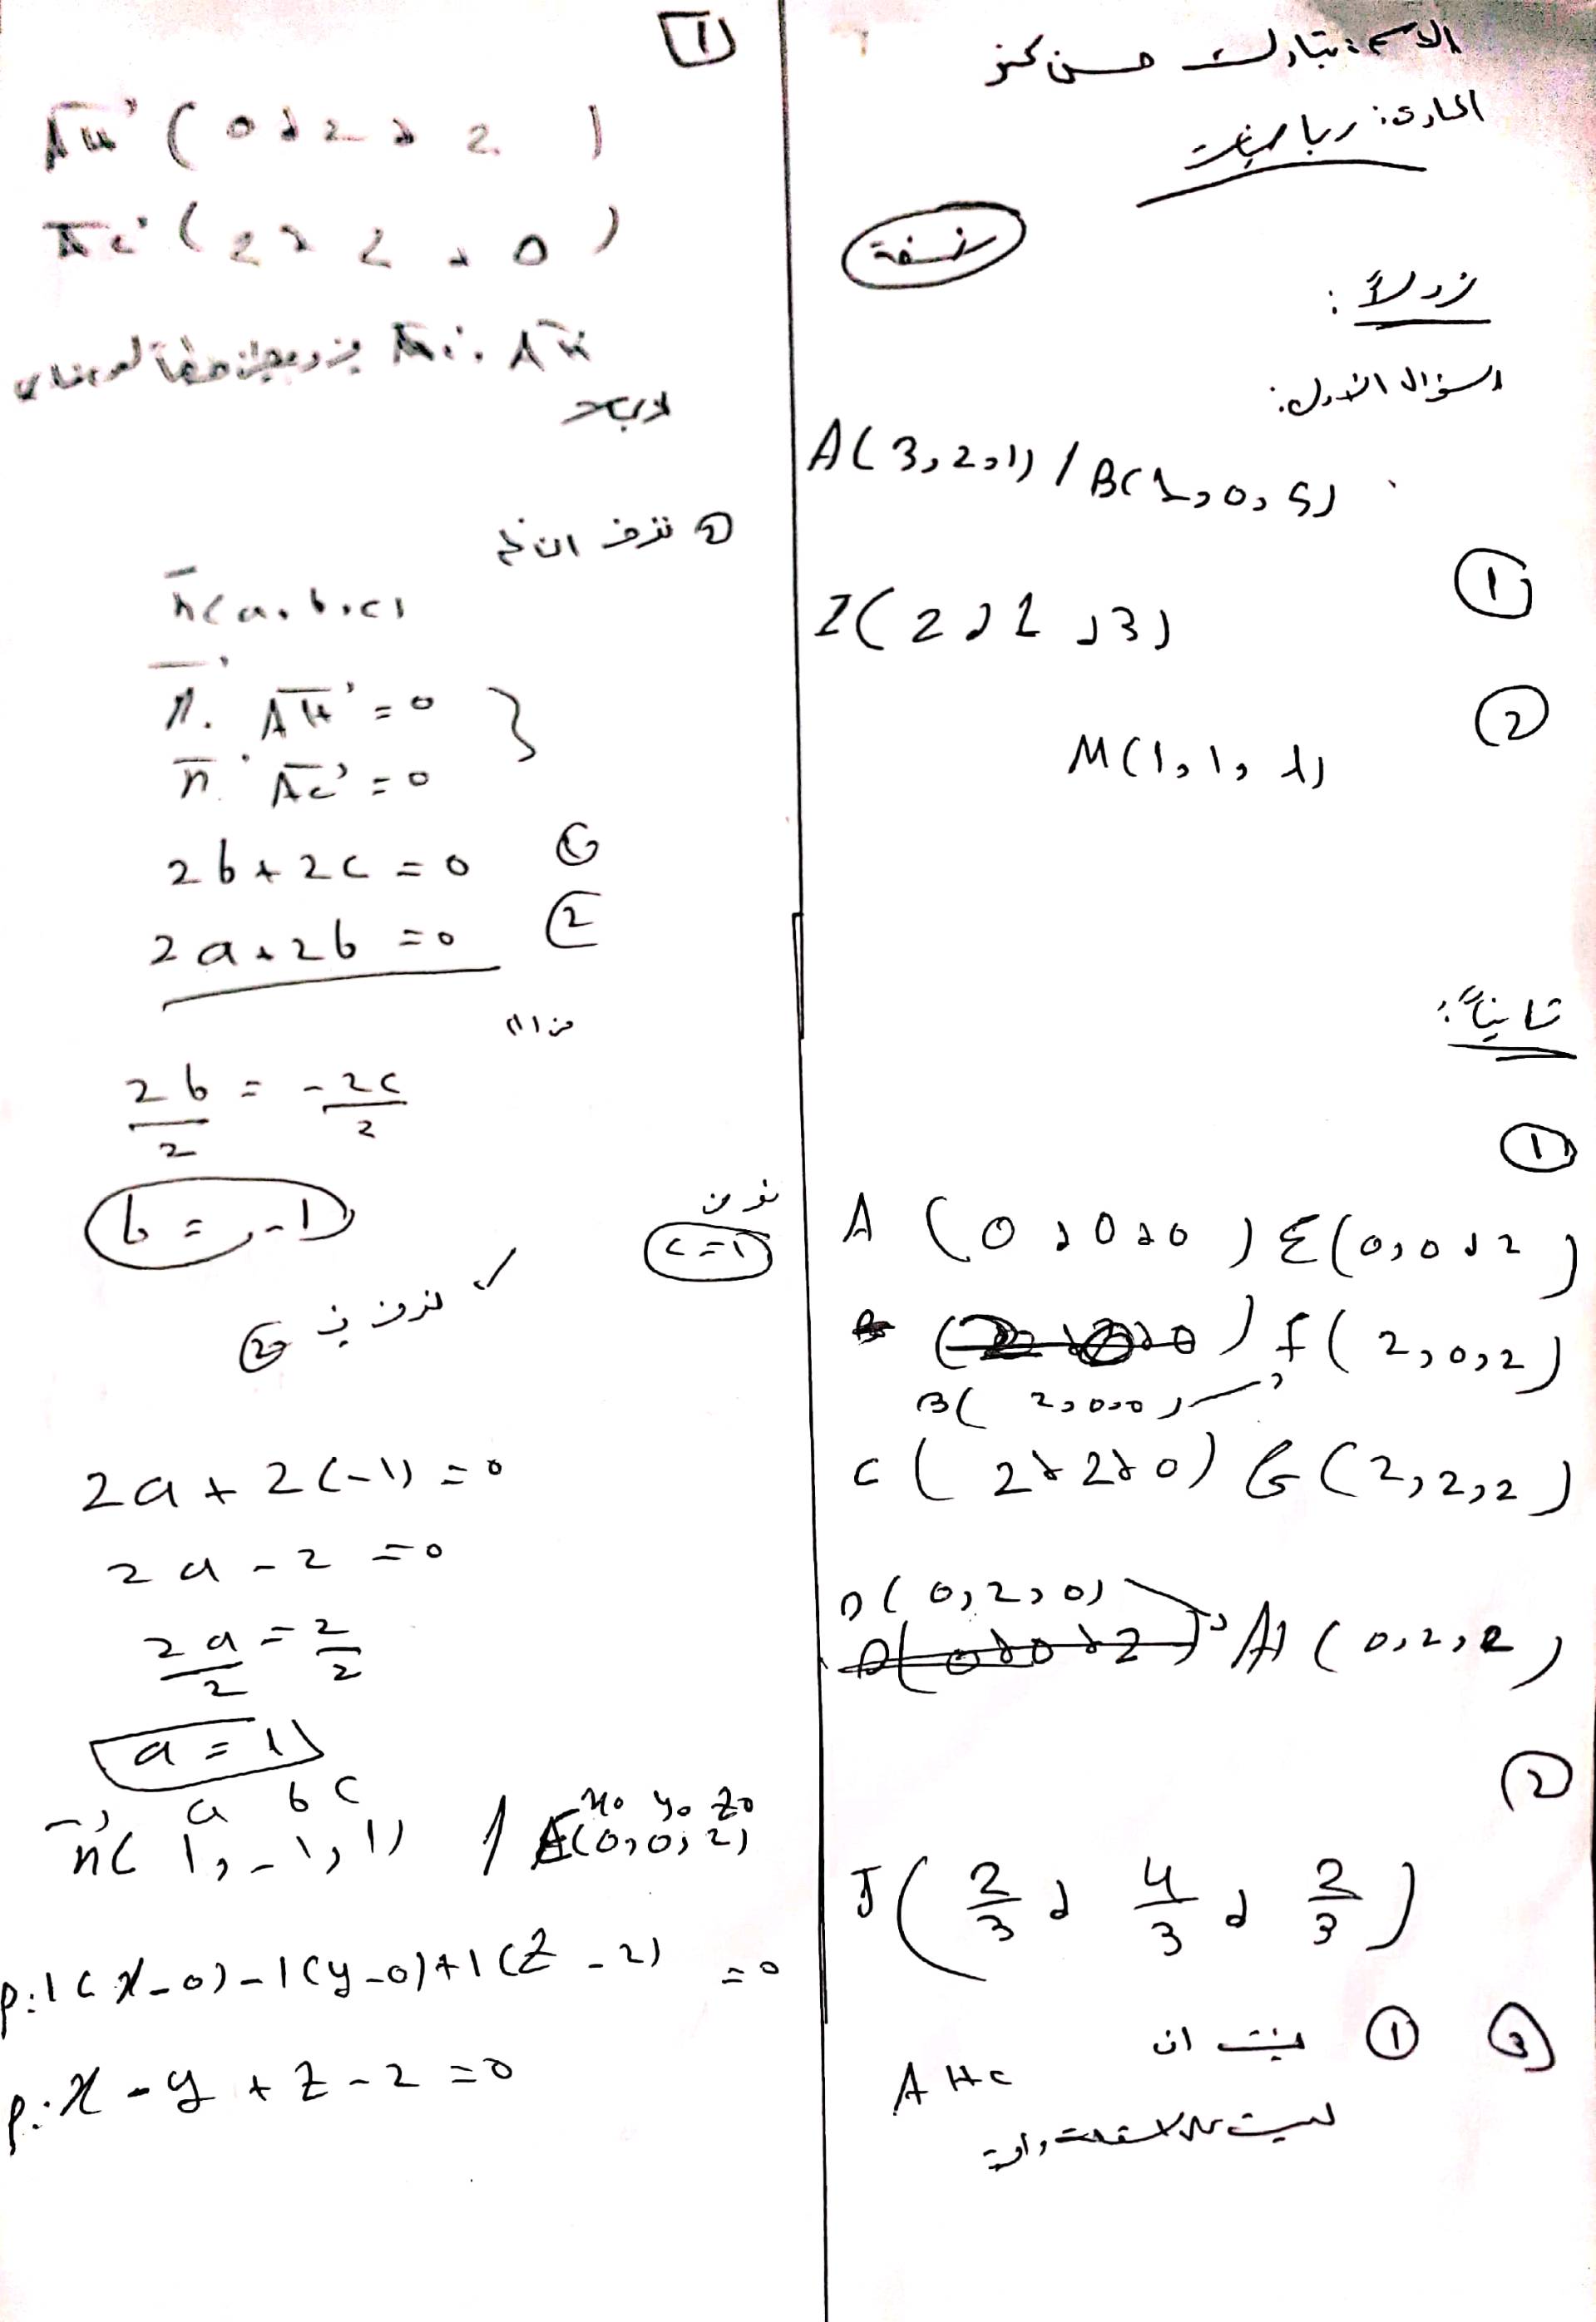 الاسم: تبارك حسن
المادة: رياضيات
أولاً:
السؤال الأول:
A(3,2,1) / B(1,0,5)
①
I(2,1,3)
②
M(1,1,1)
ثانياً:
①
A(0,0,0) E(0,0,2)
F(2,0,2)
B(2,0,0)
C(2,2,0) G(2,2,2)
D(0,2,0)
H(0,2,2)
②
J(2/3, 4/3, 2/3)
③ ① نثبت ان
AHC
ليست على استقامة واحدة
1
AH(0,2,2)
AC(2,2,0)
AC, AH
② نفرض ان
n(a,b,c)
n.AH=0
n.AC=0
2b+2c=0 ①
2a+2b=0 ②
من
2b/2 = -2c/2
نفرض
c=1
b=-1
نعوض في ②
2a+2(-1)=0
2a-2=0
2a/2=2/2
a=1
a b c x0 y0 z0
n(1,-1,1) / E(0,0,2)
p:1(x-0)-1(y-0)+1(z-2)=0
p:x-y+z-2=0